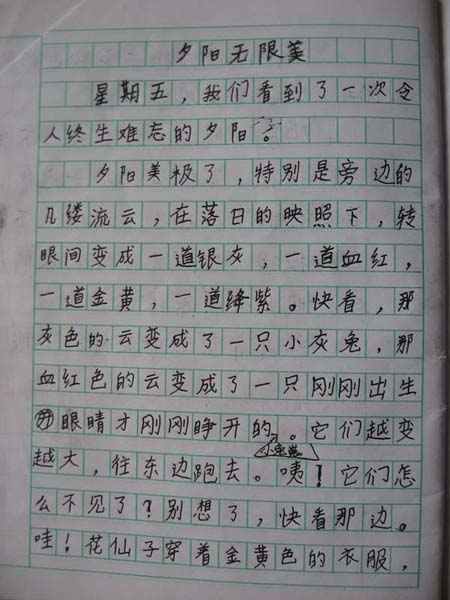 夕阳无限美
星期五，我们看到了一次令
人终生难忘的夕阳。
夕阳美极了，特别是旁边的
几缕流云，在落日的映照下，转
眼间变成一道银灰，一道血红，
一道金黄，一道绛紫。快看，那
灰色的云变成了一只小灰兔，那
血红色的云变成了一只刚刚出生
眼睛才刚刚睁开的小兔崽。它们越变
越大，往东边跑去。咦！它们怎
么不见了？别想了，快看那边。
哇！花仙子穿着金黄色的衣服，